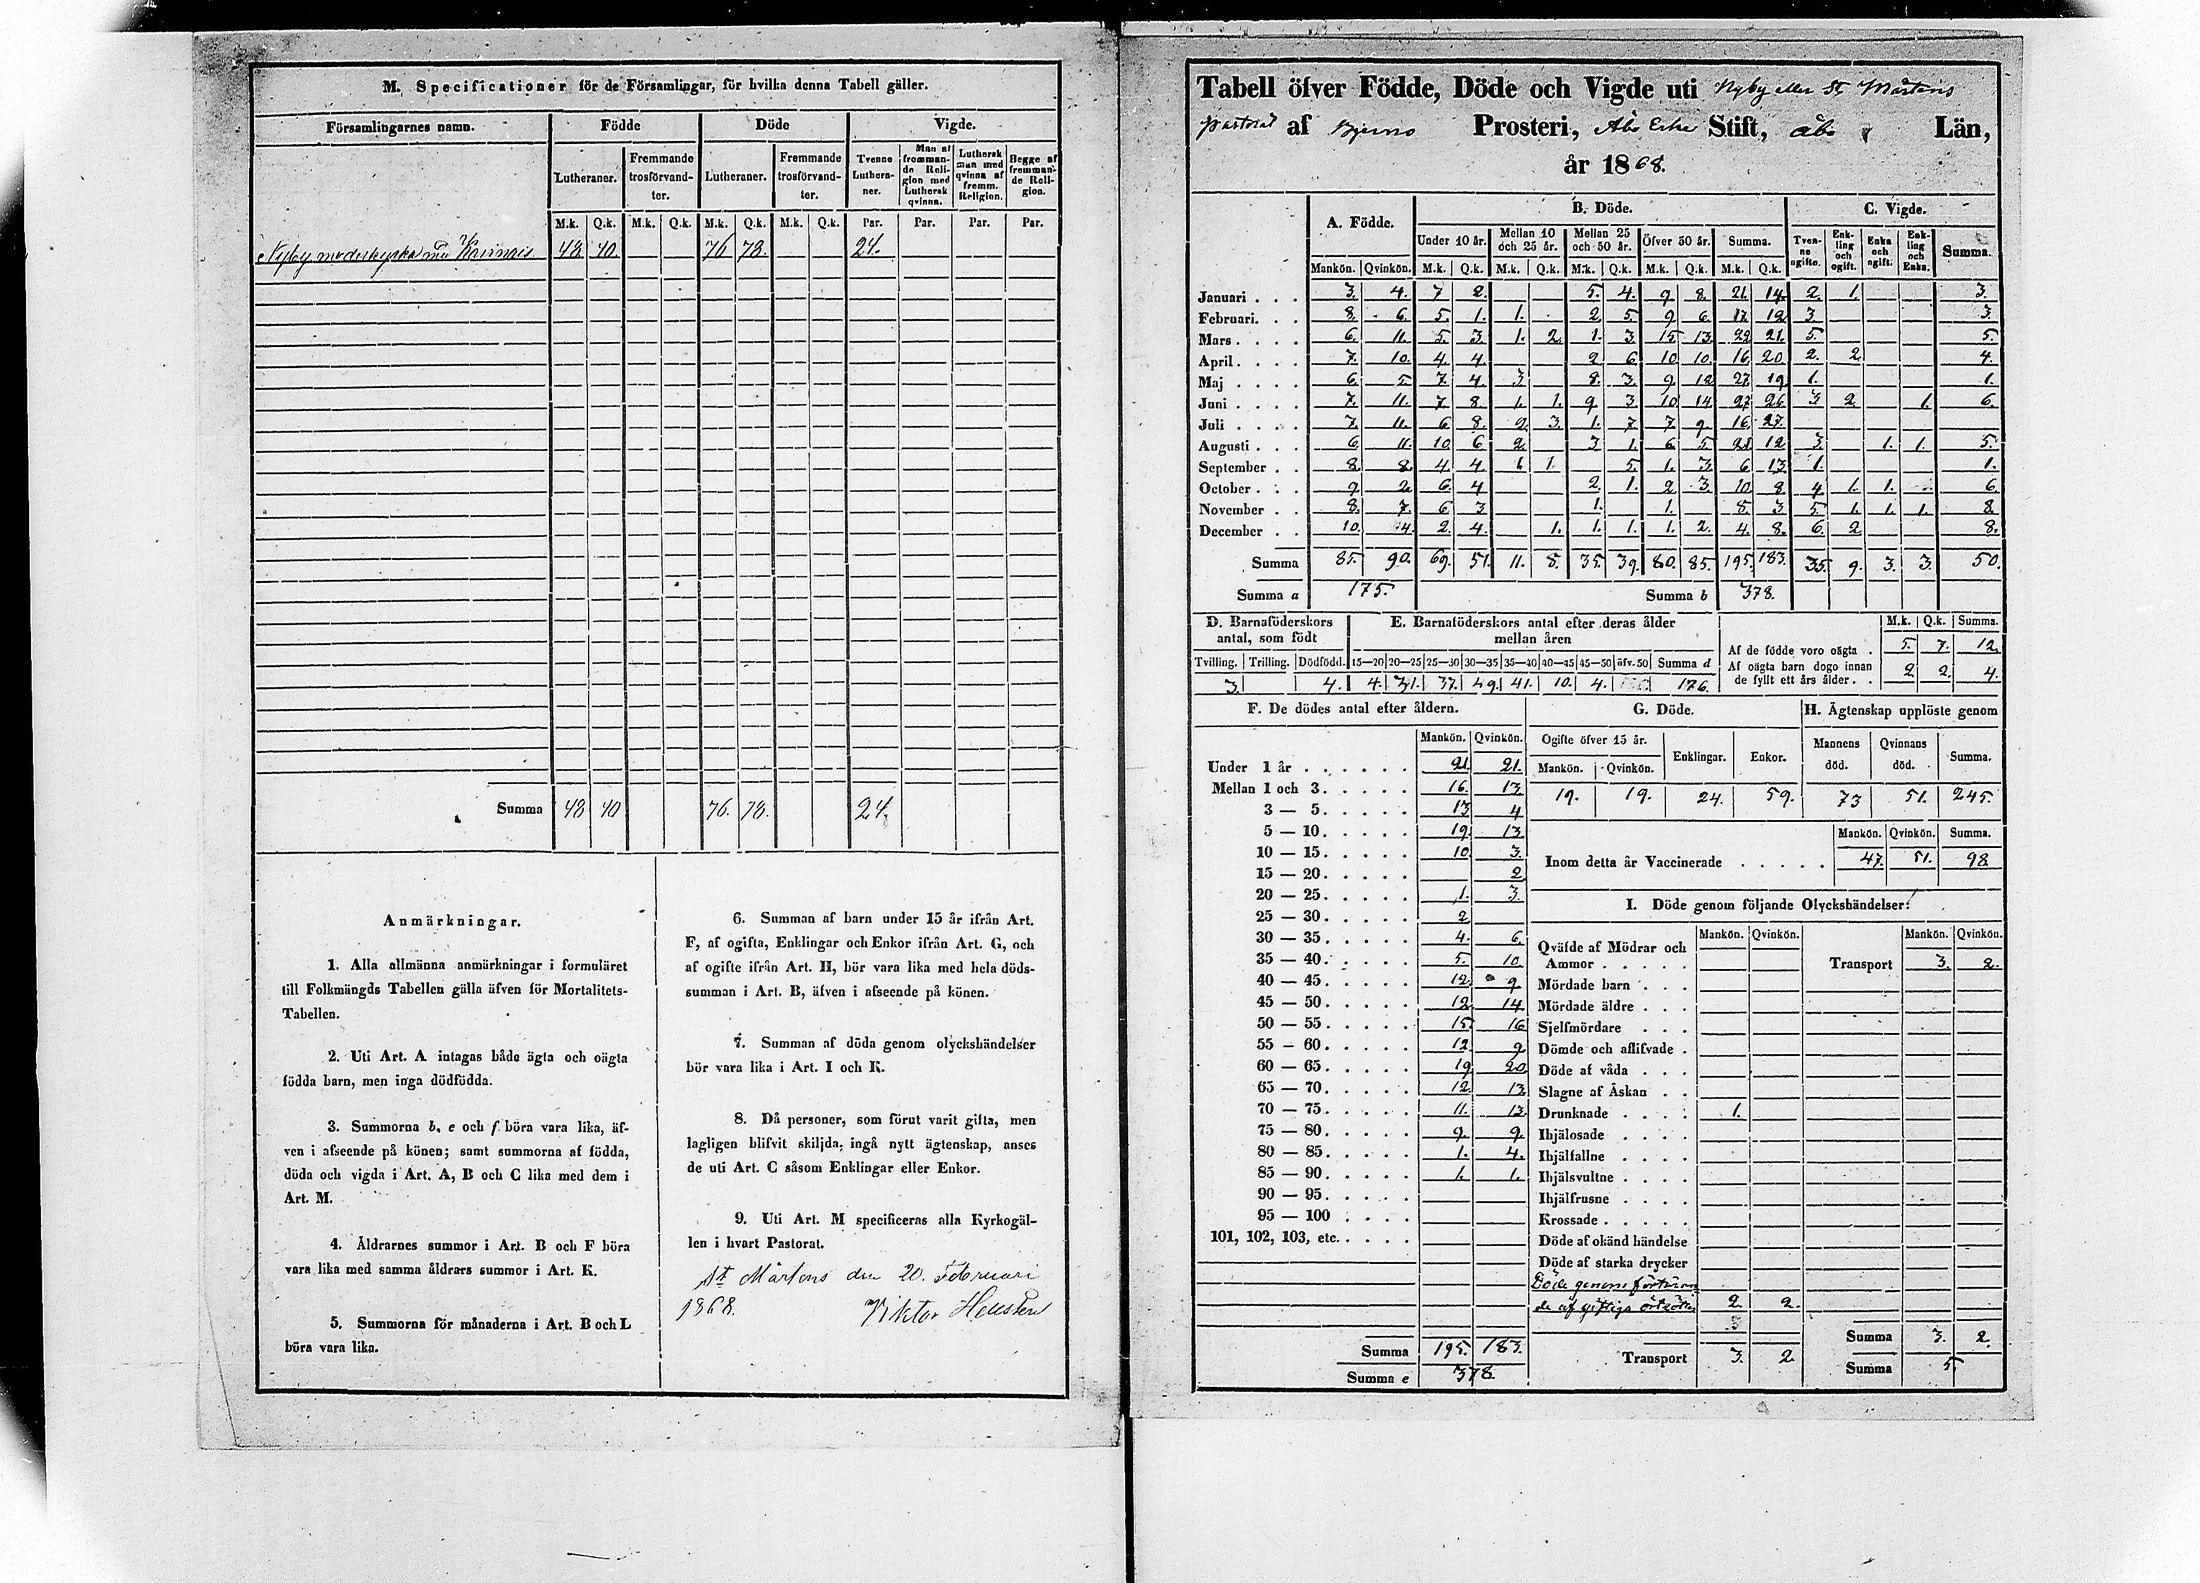 M. Specificationer för de Församlingar, för hvilka denna Tabell gäller.
Församlingarnes namn. Födde Döde Vigde.
Lutheraner. Fremmande trosförvandter. Lutheraner. Fremmande trosförvandter. Tvenne Lutheraner. Man af frommande Religion med Luthersk qvinna. Luthersk man med qvinna af fremm. Religion. Begge af fremmande Religion.
M.k. Q.k. M.k. Q.k. M.k. Q.k. M.k. Q.k. Par. Par. Par. Par.
Nyby moderkyrka 48 40. 76 78. 24.
Summa 48 40 76. 78. 24.
Anmärkningar.
1. Alla allmänna anmärkningar i formuläret
till Folkmängds Tabellen gälla äfven för Mortalitets-
Tabellen.
2. Uti Art. A intagas både ägta och oägta
födda barn, men inga dödfödda.
3. Summorna b, e och f böra vara lika, äf-
ven i afseende på könen; samt summorna af födda,
döda och vigda i Art. A, B och C lika med dem i
Art. M.
4. Åldrarnes summor i Art. B och F böra
vara lika med samma åldrars summor i Art. K.
5. Summorna för månaderna i Art. B och L
böra vara lika.
6. Summan af barn under 15 år ifrån Art.
F, af ogifta, Enklingar och Enkor ifrån Art. G, och
af ogifte ifrån Art. H, bör vara lika med hela döds-
summan i Art. B, äfven i afseende på könen.
7. Summan af döda genom olyckshändelser
bör vara lika i Art. I och K.
8. Då personer, som förut varit gifta, men
lagligen blifvit skiljda, ingå nytt ägtenskap, anses
de uti Art. C såsom Enklingar eller Enkor.
9. Uti Art. M specificeras alla Kyrkogäl-
len i hvart Pastorat.
St Mårtens den 20. Februari
1868. Viktor
Tabell öfver Födde, Döde och Vigde uti Nyby eller St Mårtens
Pastorat af Bjerno Prosteri, Åbo Erke Stift, Åbo Län,
år 1868.
A. Födde. B. Döde. C. Vigde.
Under 10 år. Mellan 10 och 25 år. Mellan 25 och 50 år. Öfver 50 år. Summa. Tvenne ogifte. Enkling och ogift. Enka och ogift. Enkling och Enka. Summa.
Mankön. Qvinkön. M.k. Q.k. M.k. Q.k. M.k. Q.k. M.k. Q.k. M.k. Q.k.
Januari . . . 3. 4. 7 2. 5. 4. 9 8. 21. 14. 2. 1. 3.
Februari. . . 8. 6. 5. 1. 1. 2 5. 9 6. 17. 12 3 3.
Mars . . . . 6. 11. 5. 3. 1. 2. 1. 3. 15 13. 22 21. 5. 5.
April . . . . 7. 10. 4. 4. 2 6 10 10. 16. 20 2. 2 4.
Maj . . . . 6. 5 7. 4. 3 8. 3. 9. 12 27. 19. 1. 1.
Juni . . . . 7. 11. 7 8. 1. 1. 9 3. 10 14 27. 26 3 2. 1. 6.
Juli . . . . 7. 11. 6 8. 2. 3. 1. 7 7 9. 16. 27.
Augusti . . . 6. 11. 10 6 2. 3 1. 6 5. 21. 12 3. 1. 1. 5.
September . . 8. 8. 4 4. 1 1. 5. 1. 3. 6. 13. 1. 1.
October . . . 9 2. 6. 4 2. 1. 2. 3. 10 8. 4. 1. 1. 6.
November . . 8. 7. 6 3 1. 1. 8. 3 5. 1. 1. 1. 8.
December . . 10. 4. 2. 4. 1. 1. 1. 1. 2. 4. 8. 6. 2 8.
Summa 85. 90. 69. 51. 11. 8. 35. 39. 80. 85. 195. 183. 35. 9. 3. 3. 50.
Summa a 175. Summa b 378.
D. Barnaföderskors antal, som födt E. Barnaföderskors antal efter deras ålder mellan åren M.k. Q.k. Summa.
Tvilling. Trilling. Dödfödd. 15—20 20—25 25—30 30—35 35—40 40—45 45—50 öfv.50 Summa d
3. 4. 4. 31. 37. 49. 41. 10. 4. 176.
Af de födde voro oägta . 5. 7. 12.
Af oägta barn dogo innan
de fyllt ett års ålder . . 2 2. 4.
F. De dödes antal efter åldern. G. Döde. H. Ägtenskap upplöste genom
Mankön. Qvinkön. Ogifte öfver 15 år. Mankön. Qvinkön. Enklingar. Enkor. Mannens död. Qvinnans död. Summa.
19. 19. 24. 59. 73 51. 245.
Mankön. Qvinkön. Summa.
Inom detta år Vaccinerade . . . . . 47. 51. 98.
Under 1 år . . . . . . 21. 21.
Mellan 1 och 3 . . . . . 16. 13.
3 — 5. . . . . 13 4
5 — 10. . . . . 19. 13.
10 — 15. . . . . 10. 3.
15 — 20. . . . . 2
20 — 25. . . . . 1. 3.
25 — 30. . . . . 2
30 — 35. . . . . 4. 6.
35 — 40. . . . . 5. 10
40 — 45. . . . . 12. 9
45 — 50. . . . . 12. 14.
50 — 55. . . . . 15. 16
55 — 60. . . . . 12. 9
60 — 65. . . . . 19. 20
65 — 70. . . . . 12. 13
70 — 75. . . . . 11. 13
75 — 80. . . . . 9. 9.
80 — 85. . . . . 1. 4.
85 — 90. . . . . 1. 1.
90 — 95. . . . .
95 — 100 . . . .
101, 102, 103, etc. . . . .
Summa 195. 183.
Summa e 378.
I. Döde genom följande Olyckshändelser:
Mankön. Qvinkön. Mankön. Qvinkön.
Qväfde af Mödrar och
Ammor . . . . . Transport 3. 2.
Mördade barn . . .
Mördade äldre . . .
Sjelfmördare . . .
Dömde och aflifvade .
Döde af våda . . .
Slagne af Åskan . .
Drunknade . . . . 1.
Ihjälosade . . . .
Ihjälfallne . . . .
Ihjälsvultne . . . .
Ihjälfrusne . . . .
Krossade . . . . .
Döde af okänd händelse
Döde af starka drycker
Döde genom förtäran-
de af giftiga 2 2.
Summa 3. 2.
Transport 3. 2
Summa 5.